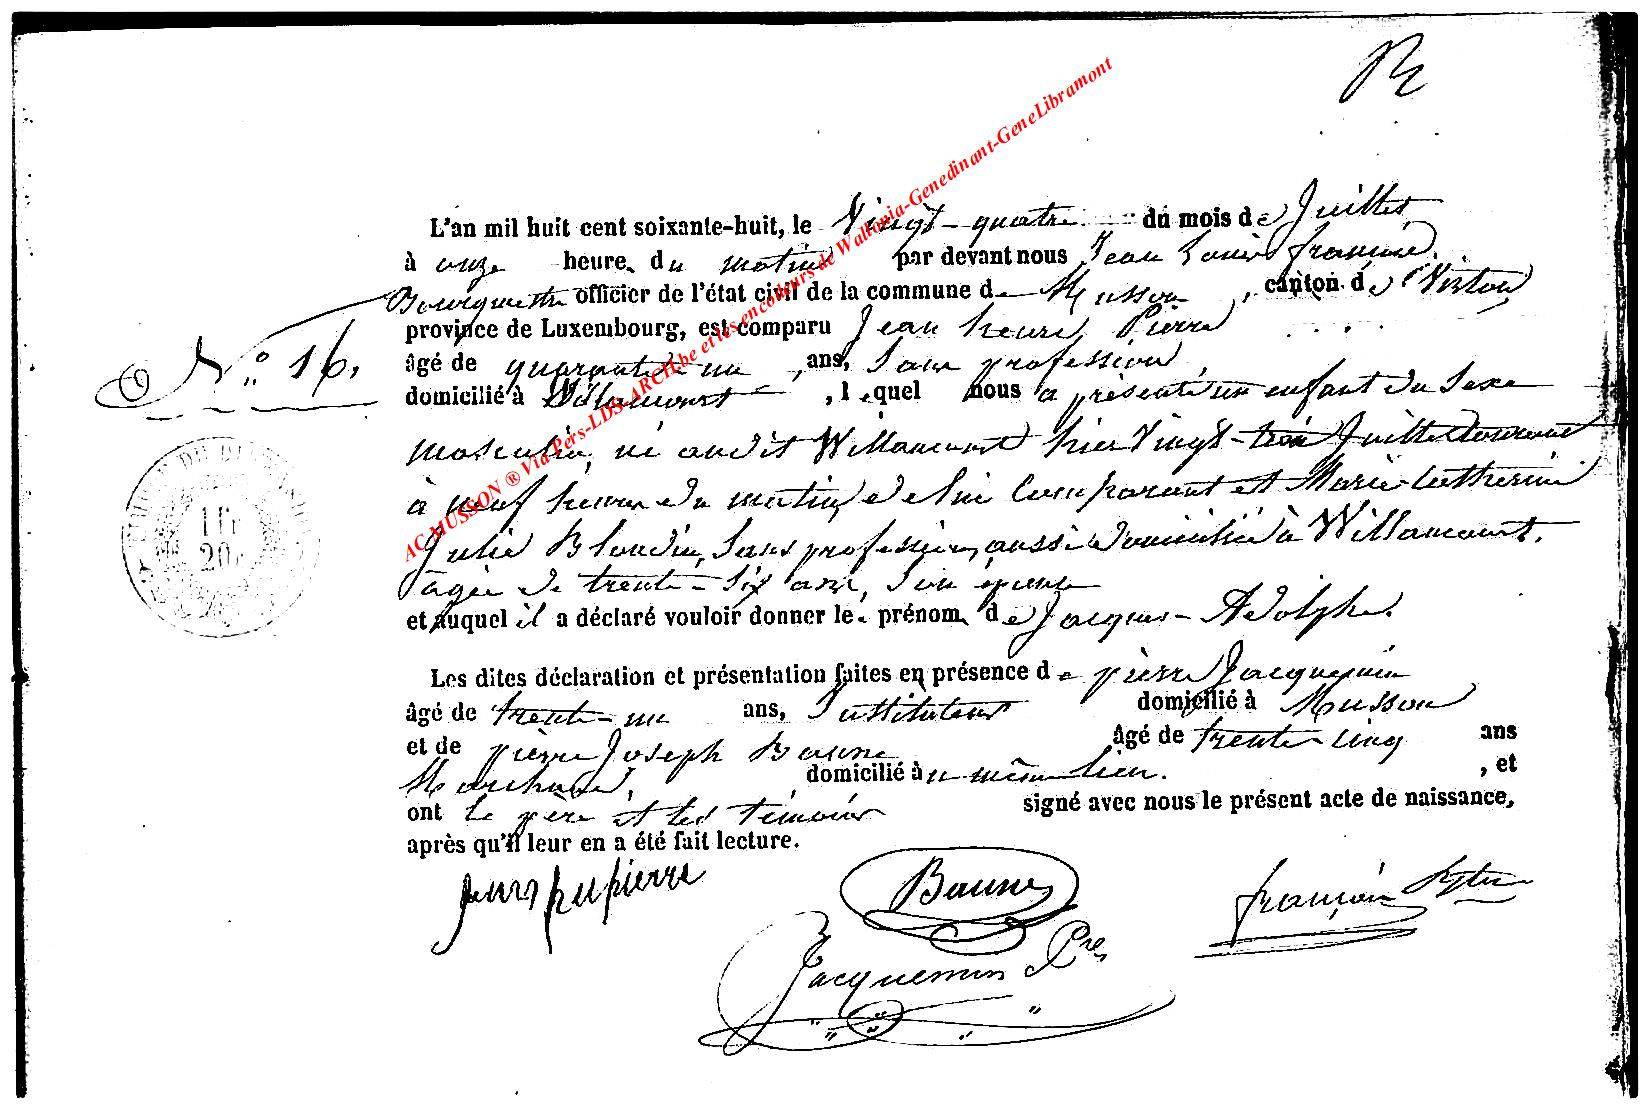 L'an mil huit cent soixante-huit, le Vingt-quatre du mois de Juillet
à onze heure. du matin par devant nous Jean Louis François
officier de l'état civil de la commune de Musson, canton de Virton
province de Luxembourg, est comparu Jean henri Pierre
N° 16.
âgé de quarante un ans, Sans profession,
domicilié à Willancourt, lequel nous a présenté un enfant du Sexe
masculin, né audit Willancourt hier Vingt-trois Juillet courant
à neuf heures du matin, de lui Comparant et Marie-Catherine
Julie Blondin, Sans profession, aussi domiciliée à Willancourt,
âgée de trente-six ans, Son épouse
et auquel il a déclaré vouloir donner le. prénom de Jacques-Adolphe.
Les dites déclaration et présentation faites en présence de pierre Jacquemin
âgé de trente-un ans, Instituteur domicilié à Musson
et de pierre Joseph Baune âgé de trente-cinq ans
Marchand, domicilié au même lieu. , et
ont le père et les témoins signé avec nous le présent acte de naissance,
après qu'il leur en a été fait lecture.
Baune
françois
Jacquemin Pre
1 fr
20c
AC MUSSON ® Via Pers-LDS-ARCH.be et les encodeurs de Wallonia-Genedinant-GeneLibramont